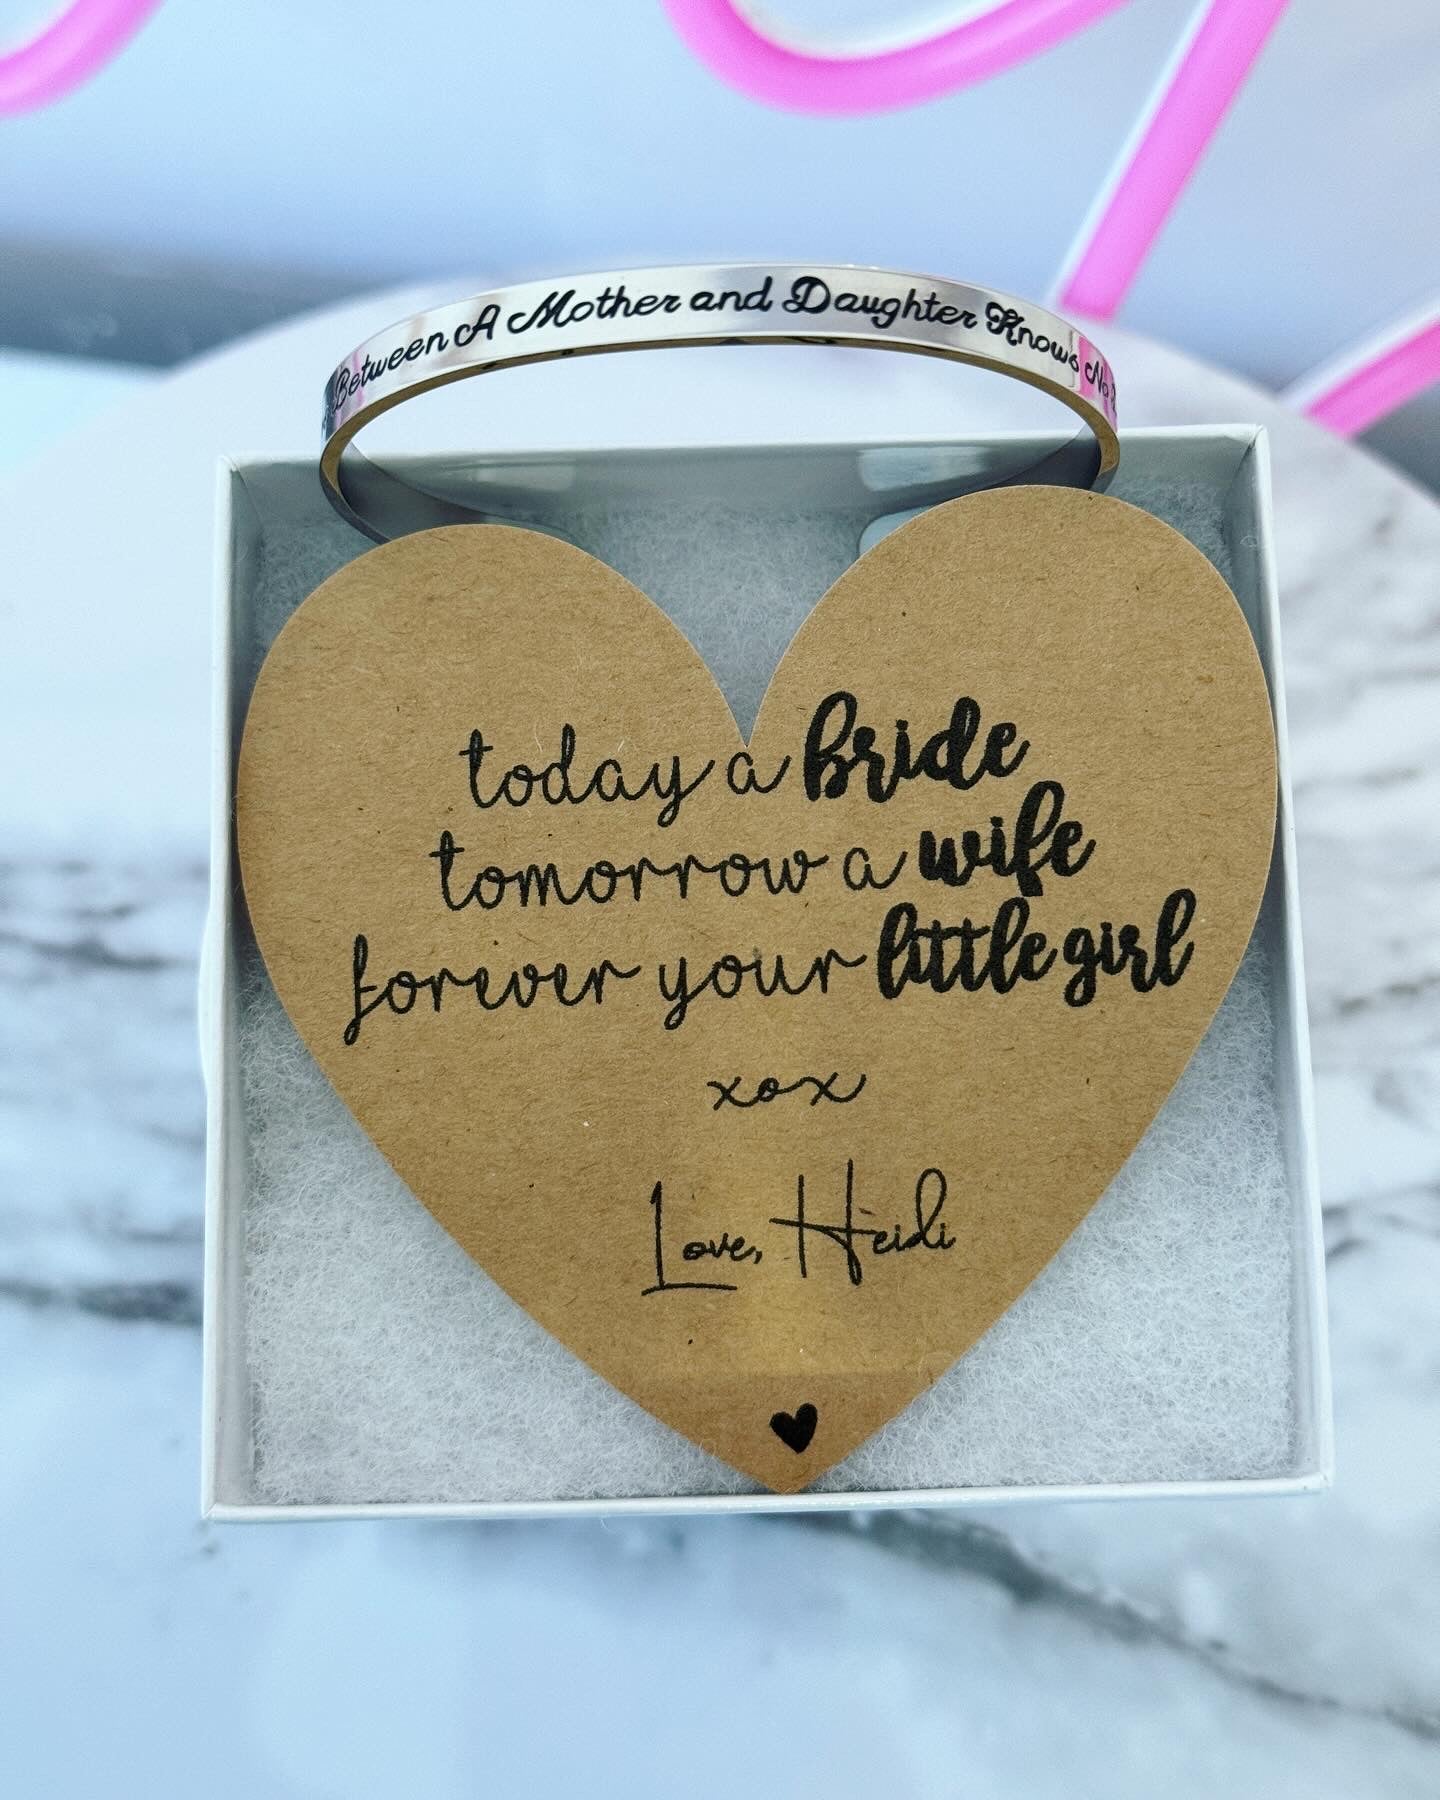 Between A Mother and Daughter Knows No
today a bride
tomorrow a wife
forever your little girl
xox
Love, Heidi